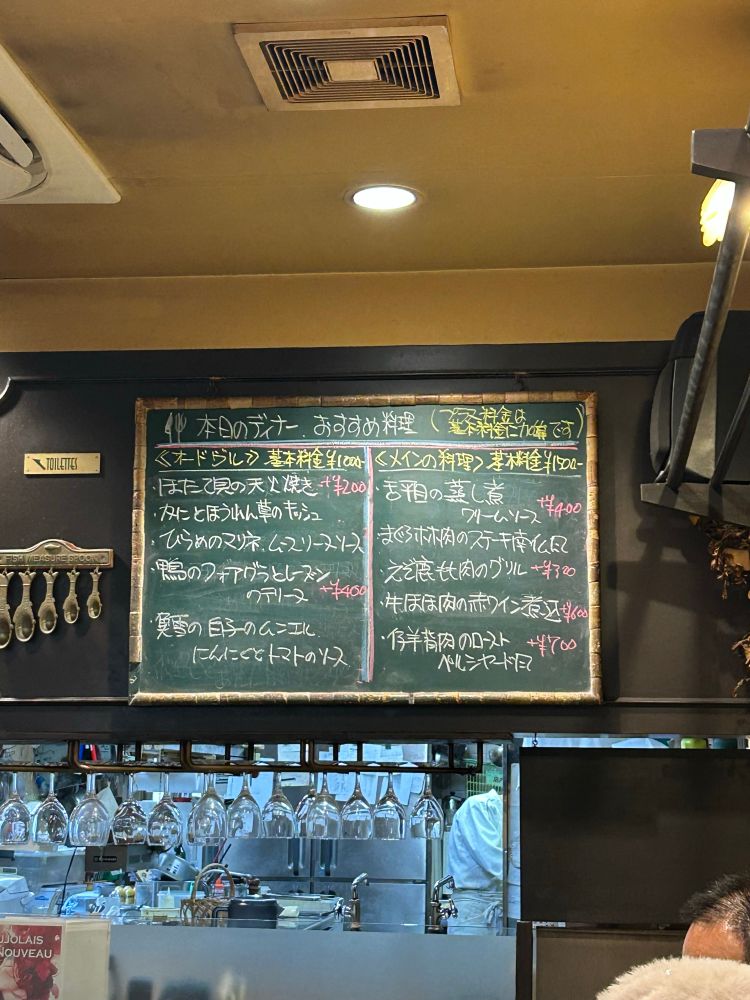 本日のディナー おすすめ料理
(プラス料金は
基本料金に加算です)
≪オードヴル≫ 基本料金¥1000-
・ほたて貝の天火焼き +¥200
・カニとほうれん草のキッシュ
・ひらめのマリネ、ムースリーヌソース
・鴨のフォアグラとレーズン
のテリーヌ +¥400
・真雪の白子のムニエル
にんにくとトマトのソース
≪メインの料理≫ 基本料金¥1500-
・舌平目の蒸し煮
クリームソース +¥400
・まぐろホホ肉のステーキ南仏風
・えぞ鹿モモ肉のグリル +¥300
・牛ほほ肉の赤ワイン煮込 +¥600
・仔羊背肉のロースト +¥700
ペルシヤード風
TOILETTES
FISH MEASURE SPOON
UJOLAIS
NOUVEAU